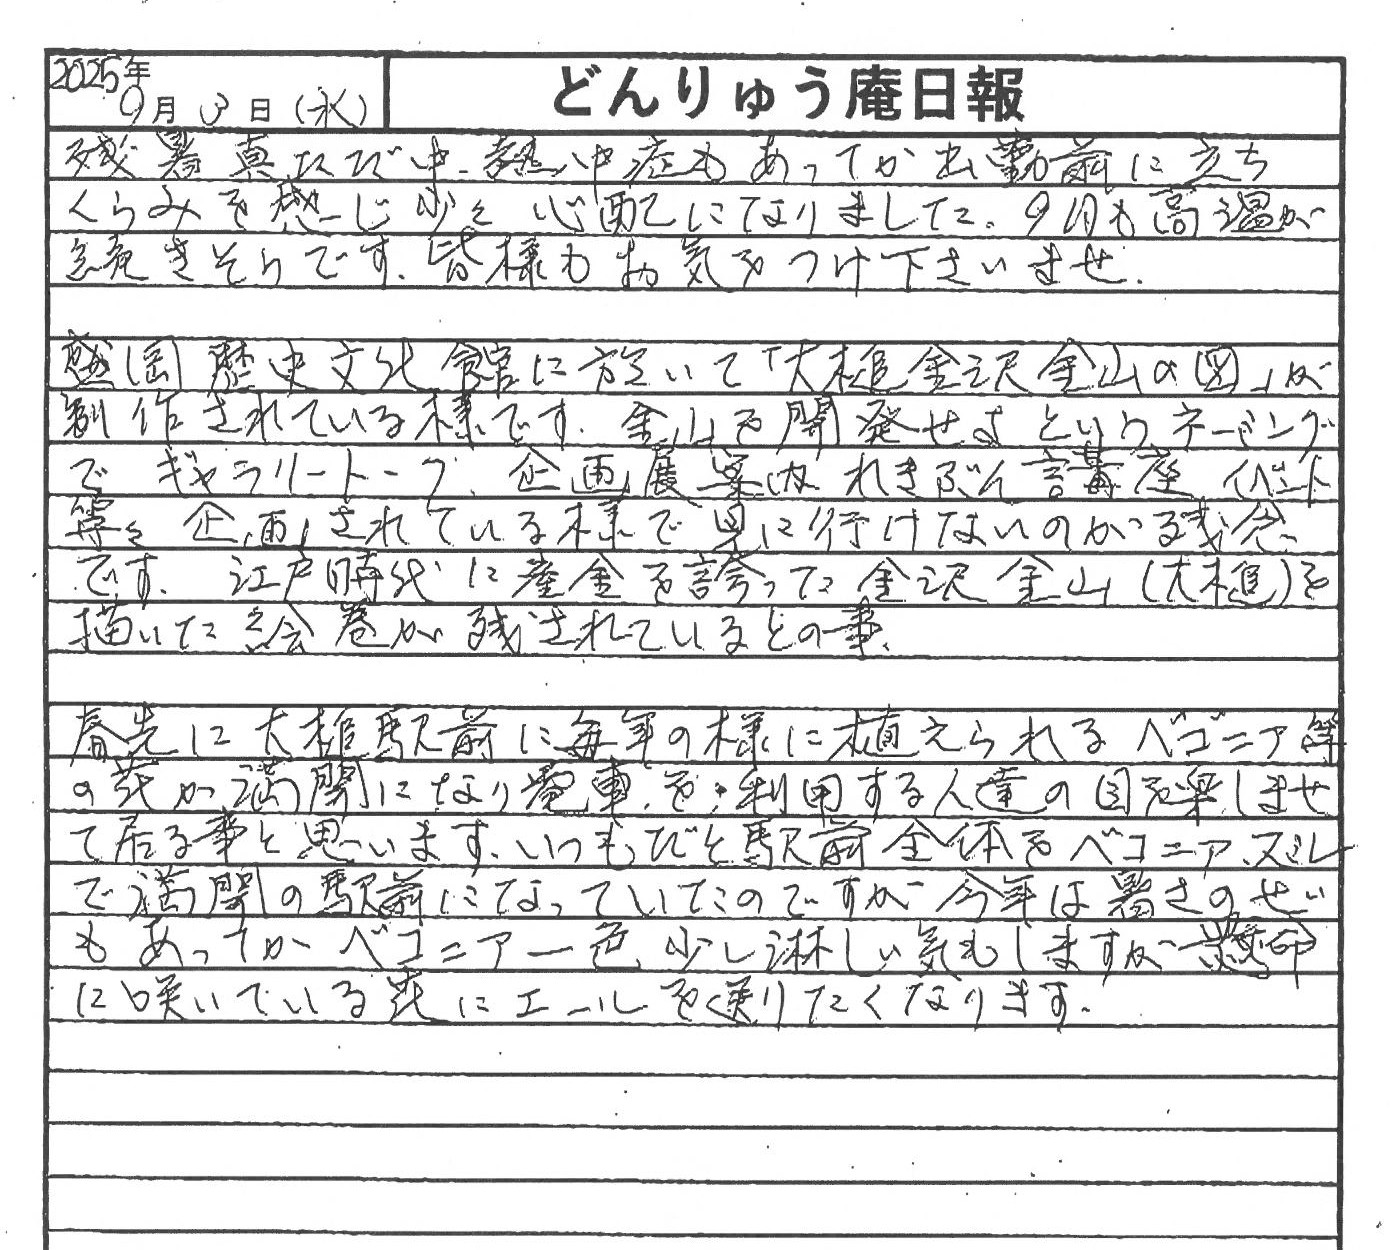 2025年
9月3日(水)
どんりゅう庵日報
残暑真只び中、熱中症もあってか出勤前に立ち
くらみを感じ少々心配になりました。9月も高温が
続きそうです。皆様もお気をつけ下さいませ。
盛岡歴史文化館に於いて「大槌金沢金山の図」が
制作されている様です。金山を開発せよというネーミング
でギャラリートーク、企画展案内れきぶん講座イベント
等々企画されている様で見に行けないのが残念
です。江戸時代に産金を誇った金沢金山(大槌)を
描いた絵巻が残されているとの事。
春先に大槌駅前に毎年の様に植えられるベゴニア等
の花が満開になり電車を利用する人達の目を楽しませ
て居る事と思います。いつもだと駅前全体をベコニア、スミレ
で満開の駅前になっていたのですが今年は暑さのせい
もあってかベコニア一色、少し淋しい気もしますが懸命
に咲いている花にエールを送りたくなります。